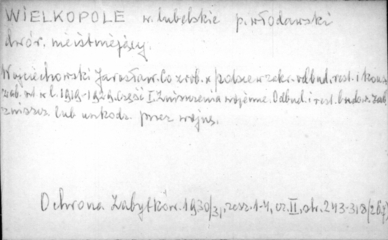 WIELKOPOLE w. lubelskie p. włodawski
dwór. nieistniejący.
Wojciechowski Jarosław. Co zrob. w Polsce w zakr. odbud. rest. i kons.
zab. szt. w l. 1919-1929. Część I. Zniszczenia wojenne. Odbud. i rest. budow. zab.
zniszcz. lub uszkodz. przez wojnę.
Ochrona Zabytków. 1930/31, zesz. 1-4, cz. II, str. 243-313